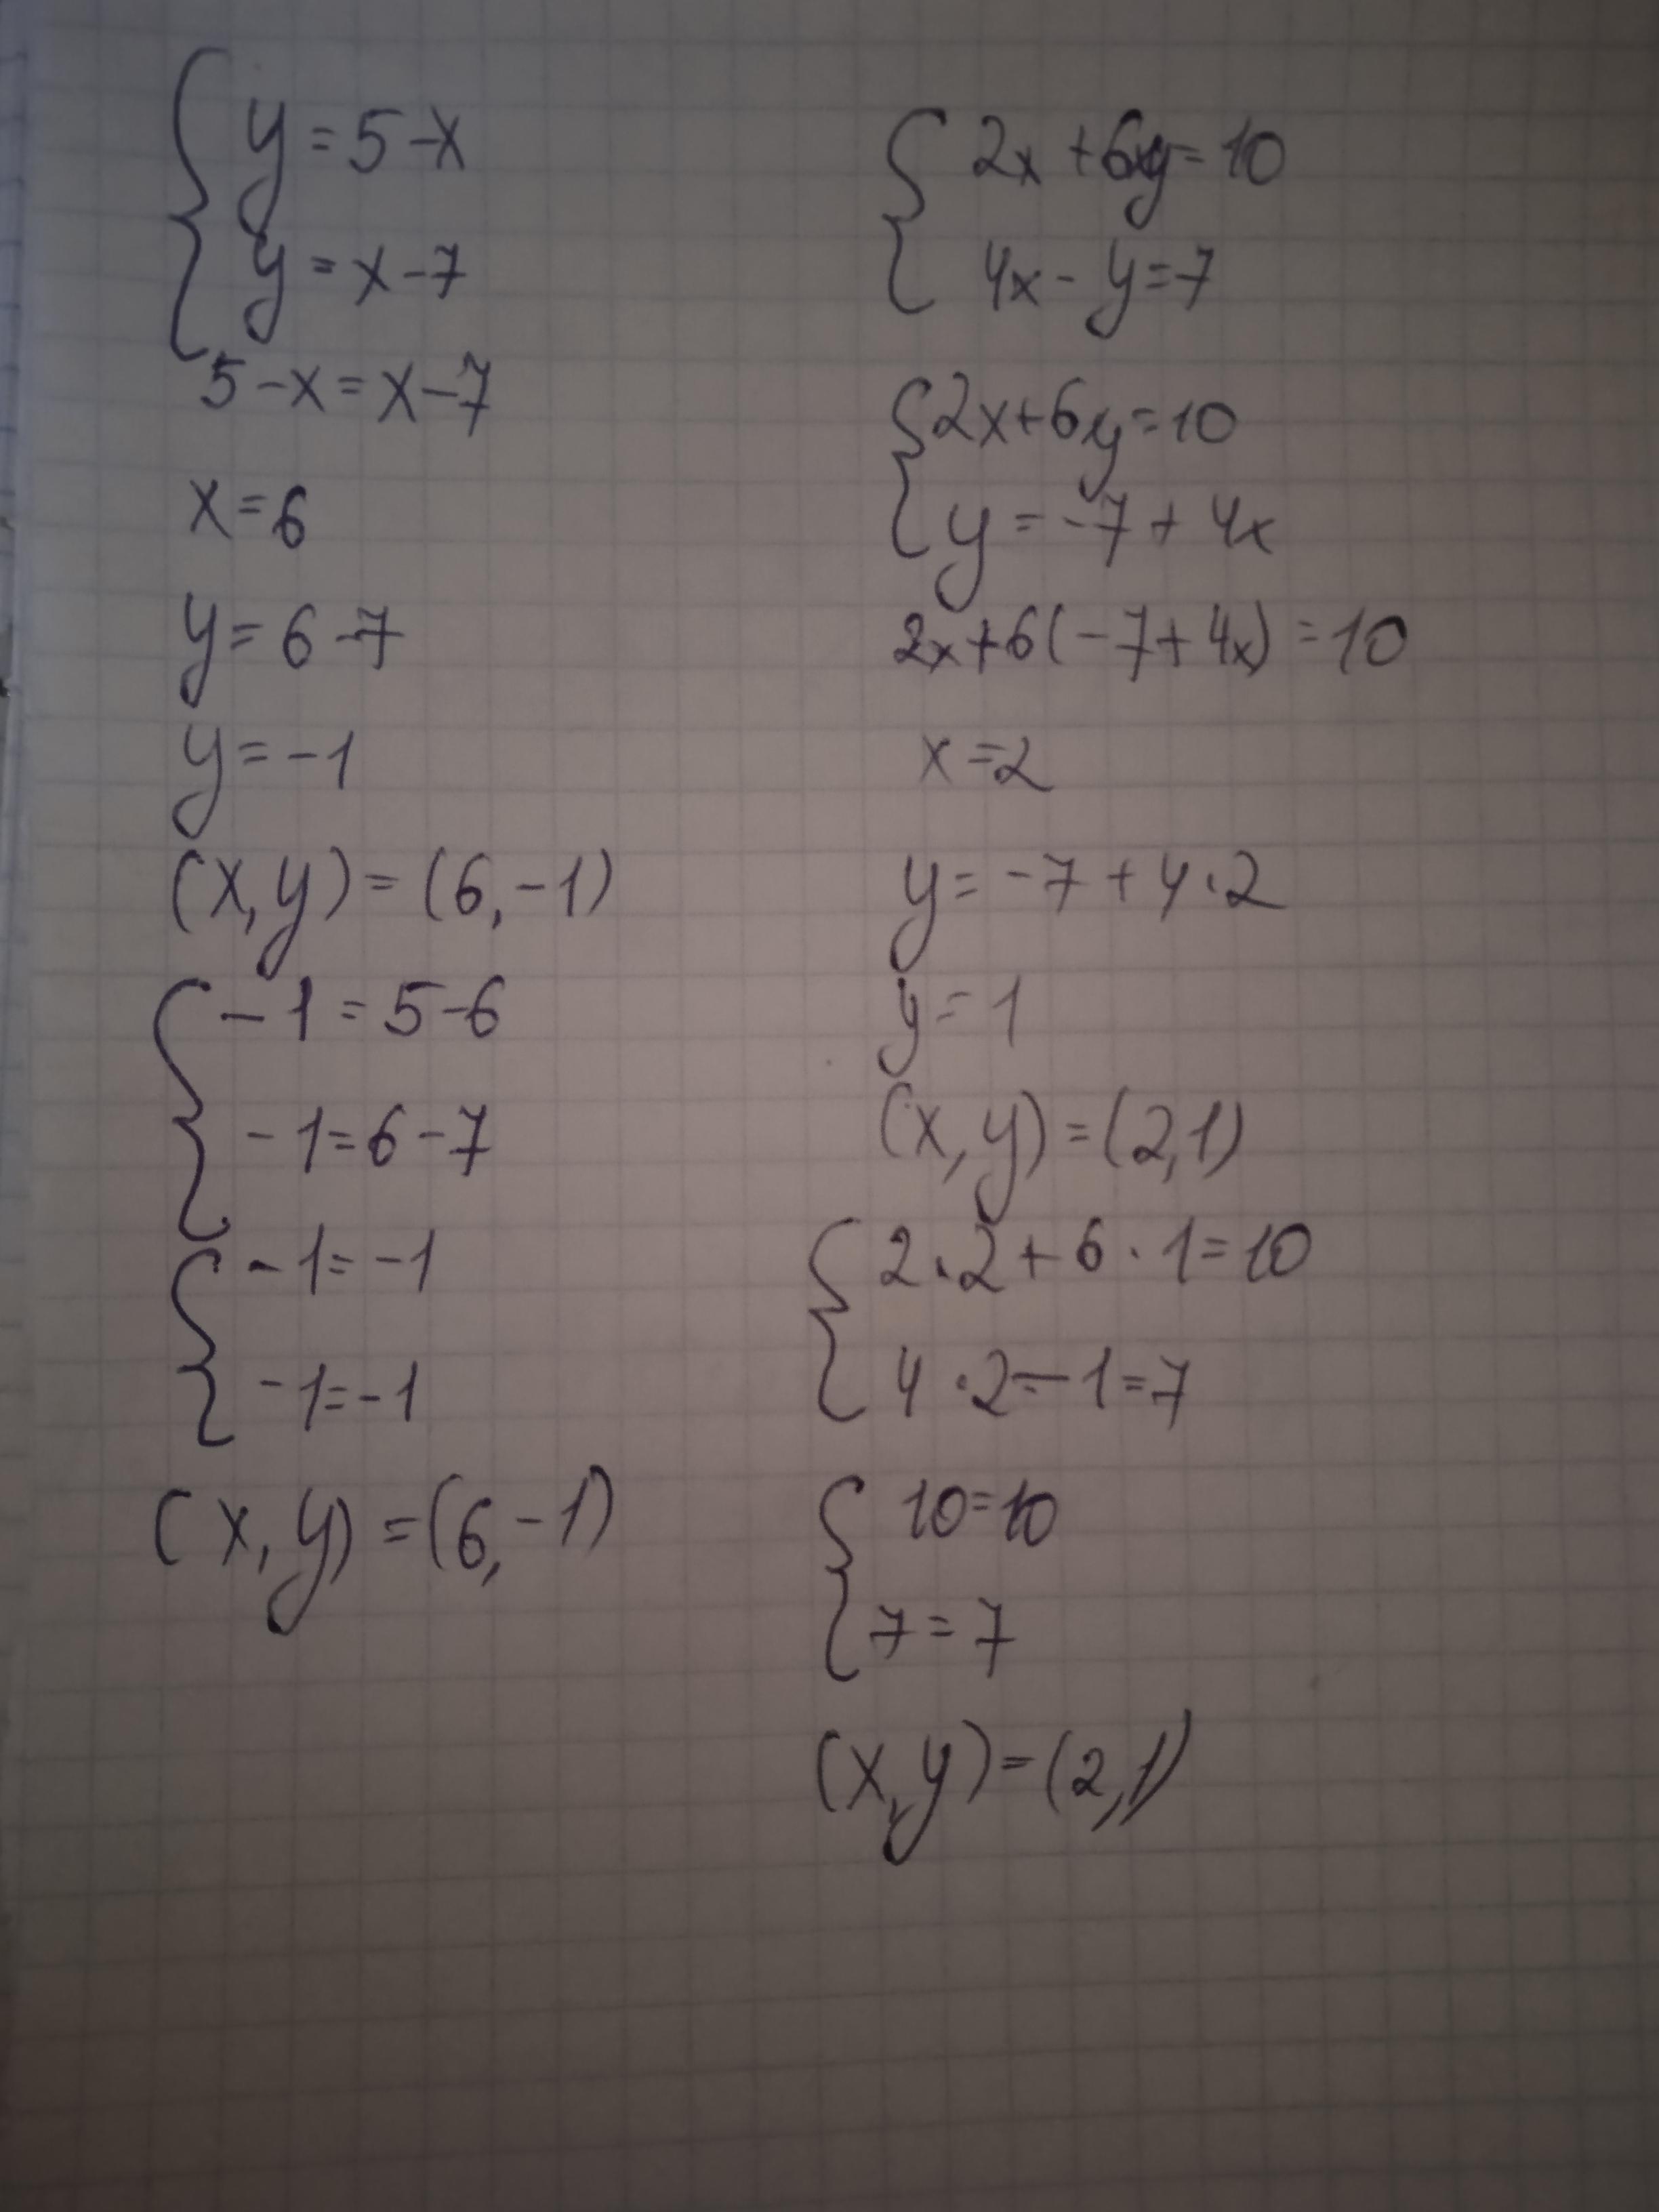 y = 5 - x
y = x - 7
5 - x = x - 7
x = 6
y = 6 - 7
y = -1
(x, y) = (6, -1)
-1 = 5 - 6
-1 = 6 - 7
-1 = -1
-1 = -1
(x, y) = (6, -1)
2x + 6y = 10
4x - y = 7
2x + 6y = 10
y = -7 + 4x
2x + 6(-7 + 4x) = 10
x = 2
y = -7 + 4 · 2
y = 1
(x, y) = (2, 1)
2 · 2 + 6 · 1 = 10
4 · 2 - 1 = 7
10 = 10
7 = 7
(x, y) = (2, 1)